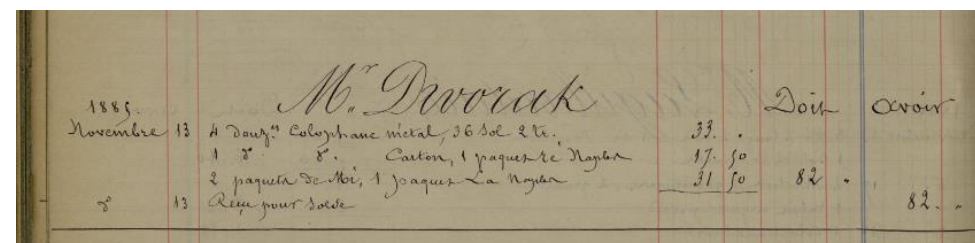 Mr. Dvorak
1885. Doit Avoir
Novembre 13 4 douz.nes Colophane métal, 36 Sol 2 te. 33. "
1 d° d°. Carton, 1 paquet ré Naples 17. 50
2 paquets de Mi, 1 paquet La Naples 31 50 82 "
d° 13 Reçu pour Solde 82. "